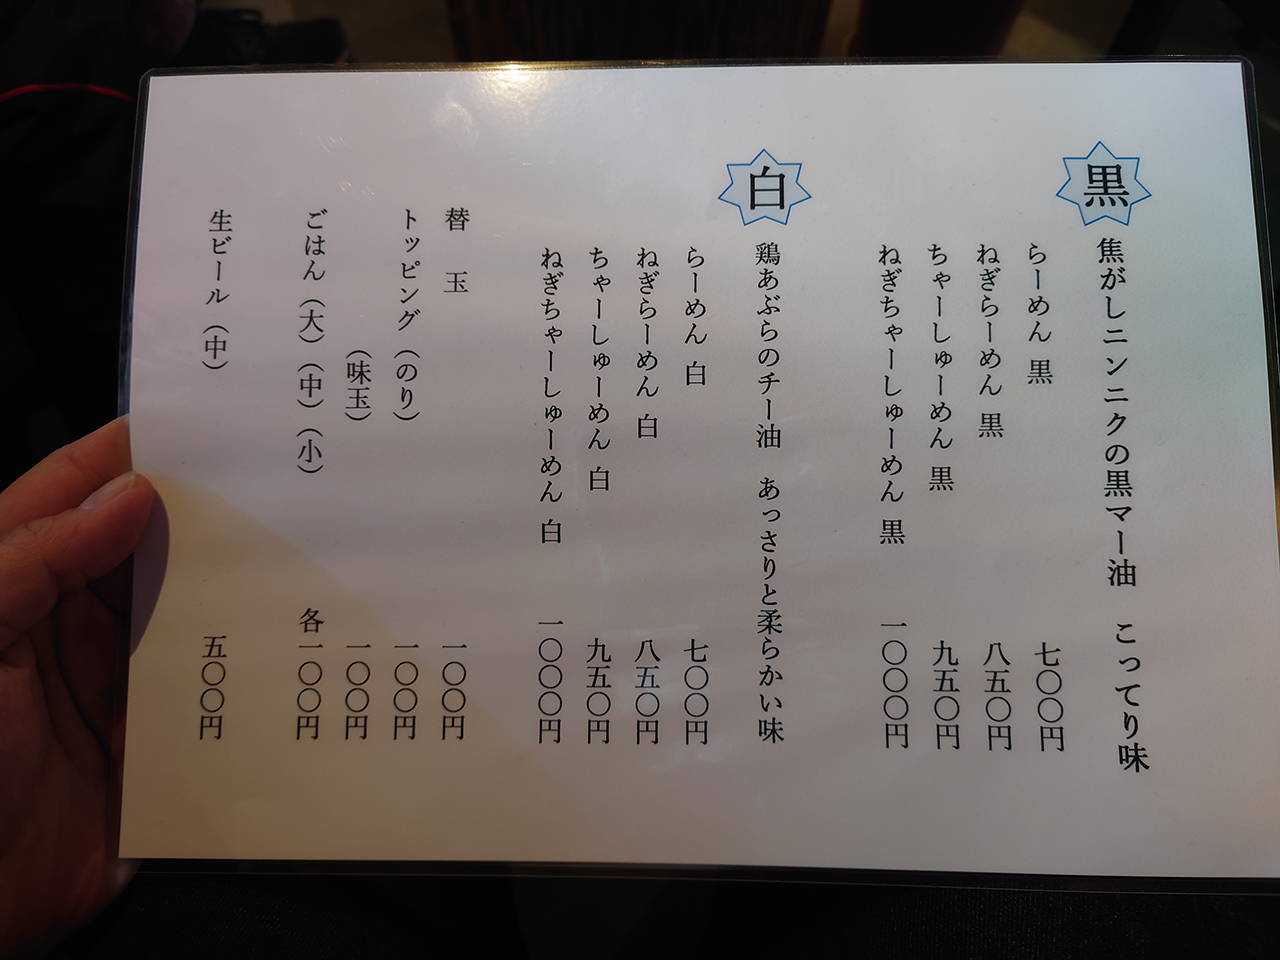 黒 焦がしニンニクの黒マー油 こってり味
らーめん 黒 七〇〇円
ねぎらーめん 黒 八五〇円
ちゃーしゅーめん 黒 九五〇円
ねぎちゃーしゅーめん 黒 一〇〇〇円
白 鶏あぶらのチー油 あっさりと柔らかい味
らーめん 白 七〇〇円
ねぎらーめん 白 八五〇円
ちゃーしゅーめん 白 九五〇円
ねぎちゃーしゅーめん 白 一〇〇〇円
替 玉 一〇〇円
トッピング（のり） 一〇〇円
（味玉） 一〇〇円
ごはん（大）（中）（小） 各一〇〇円
生ビール（中） 五〇〇円